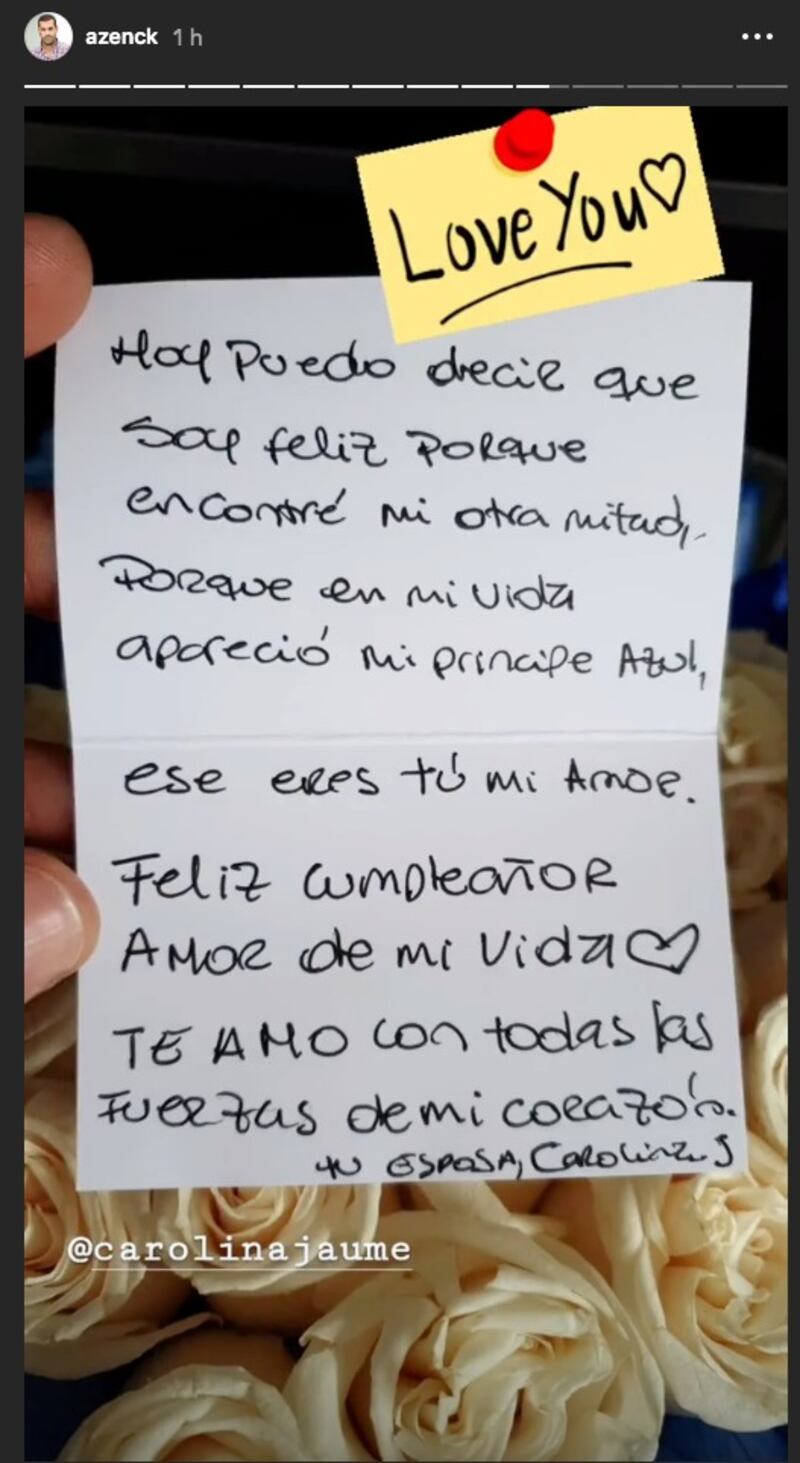 azenck 1 h
Love You♡
Hoy Puedo decir que
Soy feliz Porque
encontré mi otra mitad,
Porque en mi vida
apareció mi principe Azul,
ese eres tú mi Amor.
Feliz cumpleañor
AMOR de mi Vida♡
TE AMO con todas las
Fuerzas de mi corazón.
tu ESPOSA, Carolina J
@carolinajaume